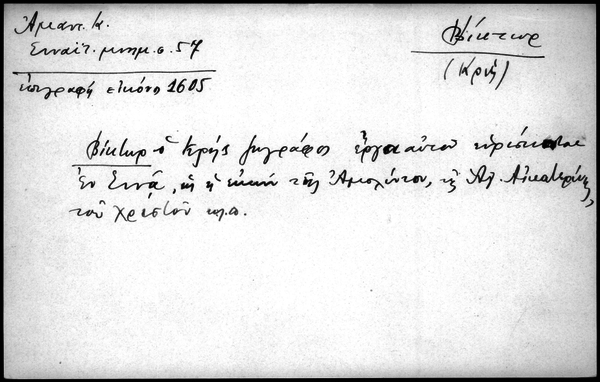 Ἀμαντ. Κ.
Σιναϊτ. μνημ. σ. 57
ὑπογραφή εἰκόνο 1605
Βίκτωρ
(Κρής)
Βίκτωρ ὁ Κρής ζωγράφος ἔργα αὐτοῦ εὑρίσκονται
ἐν Σινᾷ, ὡς ἡ εἰκών τῆς Ἀμολύντου, τῆς Ἁγ. Αἰκατερίνης,
τοῦ Χριστοῦ κ.ο.